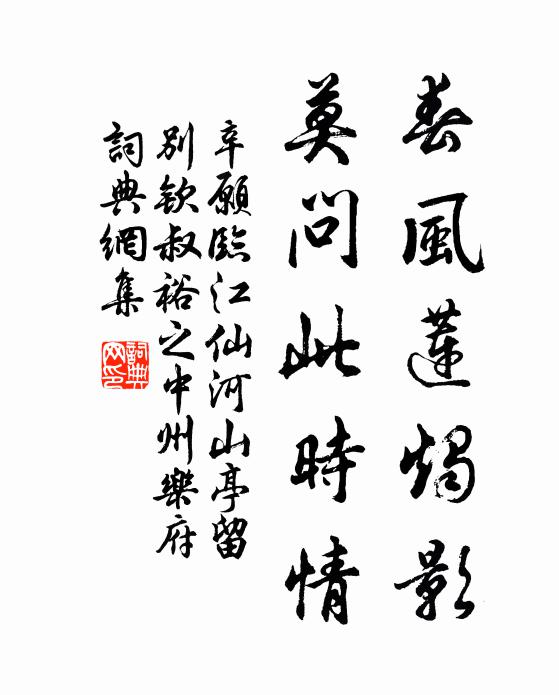 春風蓮燭影
莫問此時情
辛願臨江仙河山亭留
別欽叔裕之中州樂府
詞典網集
詞典網印